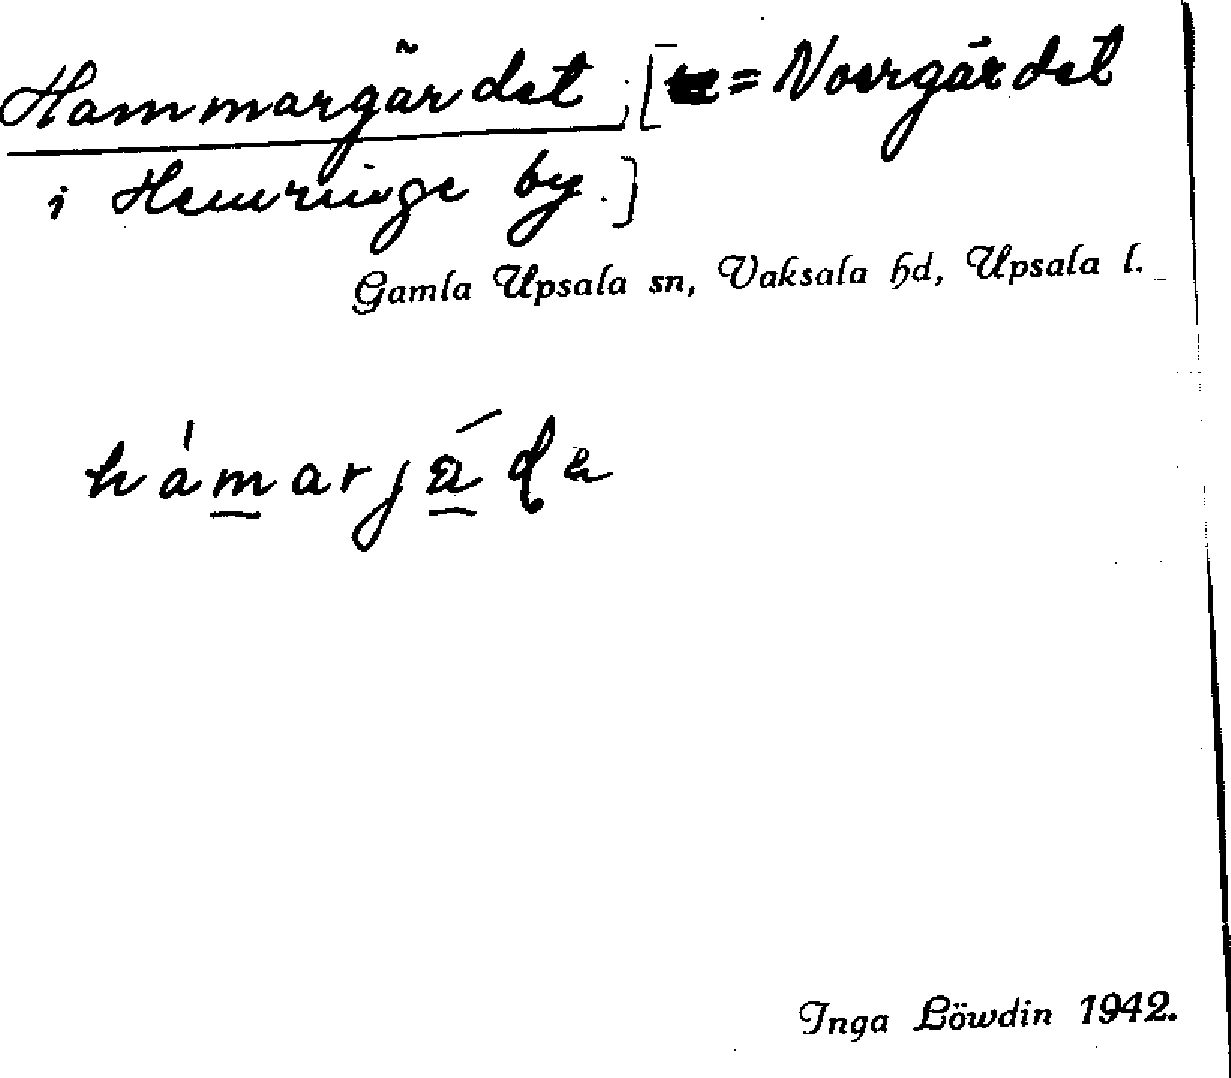 Hammargärdet; [= Norrgärdet
i Hemringe by.]
Gamla Upsala sn, Vaksala hd, Upsala l.
Inga Löwdin 1942.